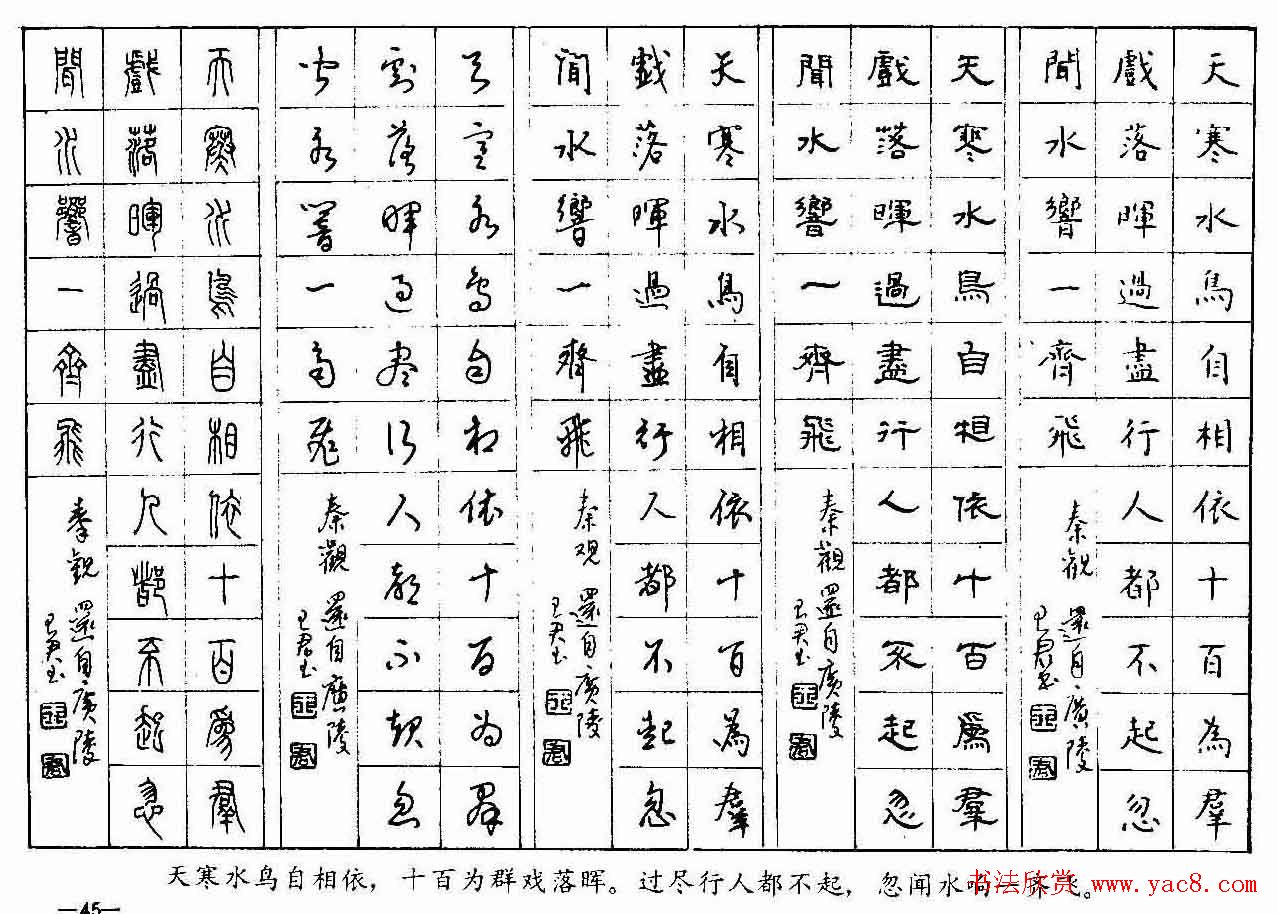 天寒水鳥自相依十百為羣
戲落暉過盡行人都不起忽
聞水響一齊飛
秦觀 還自廣陵
天寒水鳥自相依十百為羣
戲落暉過盡行人都不起忽
聞水響一齊飛
秦觀 還自廣陵
天寒水鳥自相依十百為羣
戲落暉過盡行人都不起忽
聞水響一齊飛
秦观 還自廣陵
天寒水鳥自相依十百為羣
戲落暉過盡行人都不起忽
聞水響一齊飛
秦觀 還自廣陵
天寒水鳥自相依十百為羣
戲落暉過盡行人都不起忽
聞水響一齊飛
秦觀 還自廣陵
天寒水鸟自相依，十百为群戏落晖。过尽行人都不起，忽闻水响一齐飞。
书法欣赏 www.yac8.com
—45—